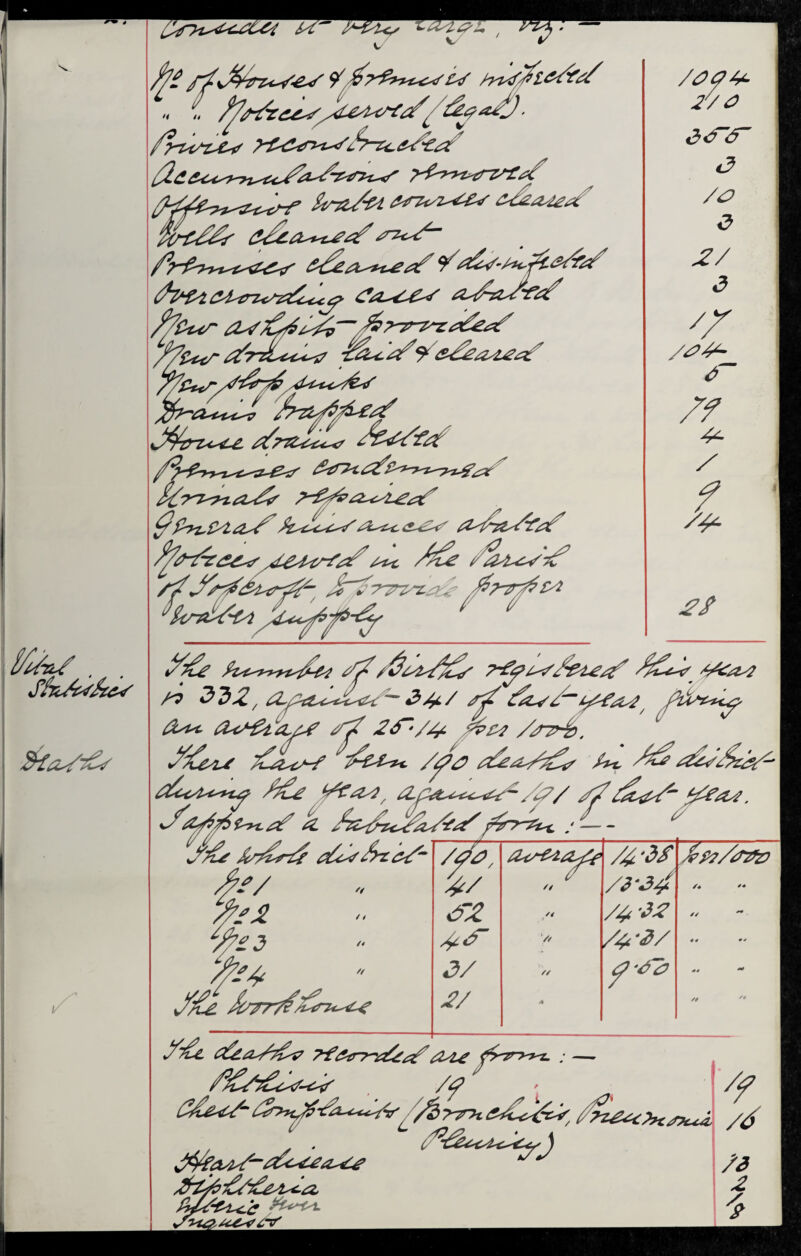 Consider it very large, viz: —
No of Houses & premises inspected 1094
" " Notices served (legal). 210
Privies reconstructed 355
Accumulations removed 3
Offensive Watercourses cleared 10
Wells cleaned out 3
Premises cleaned & dis-infected 21
Overcrowding cases abated 3
New ashpits provided 17
New drains laid & cleared 104
New slop sinks 5
Drains trapped 79
House drains tested 4
Premises condemned 1
Urinals repaired 9
General nuisances abated 14
Notices served in the Parish
of Topcroft, to provide proper
water supply 28
Vital
Statistics
The number of Births registered this year
is 332, against 341 of last year, giving
an average of 25.14 per 1000.
Deaths
There have been 190 deaths in the district
during the year, against 191 of last year.
I append a tabulated form : — -
The whole district 190, average 14.38 per 1000
No 1 " 41 " 13.34 " "
No 2 " 52 " 14.32 " "
No 3 " 45 " 14.31 " "
No 4 " 31 " 9.50 " "
The Workhouse 21 " " "
The deaths recorded are from : —
Phthisis 19 19
Chest Complaints (Bronchitis, Pneumonia 16
Pleurisy)
Heart disease 13
Diphtheria 2
Enteric Fever 1
Inquests 8